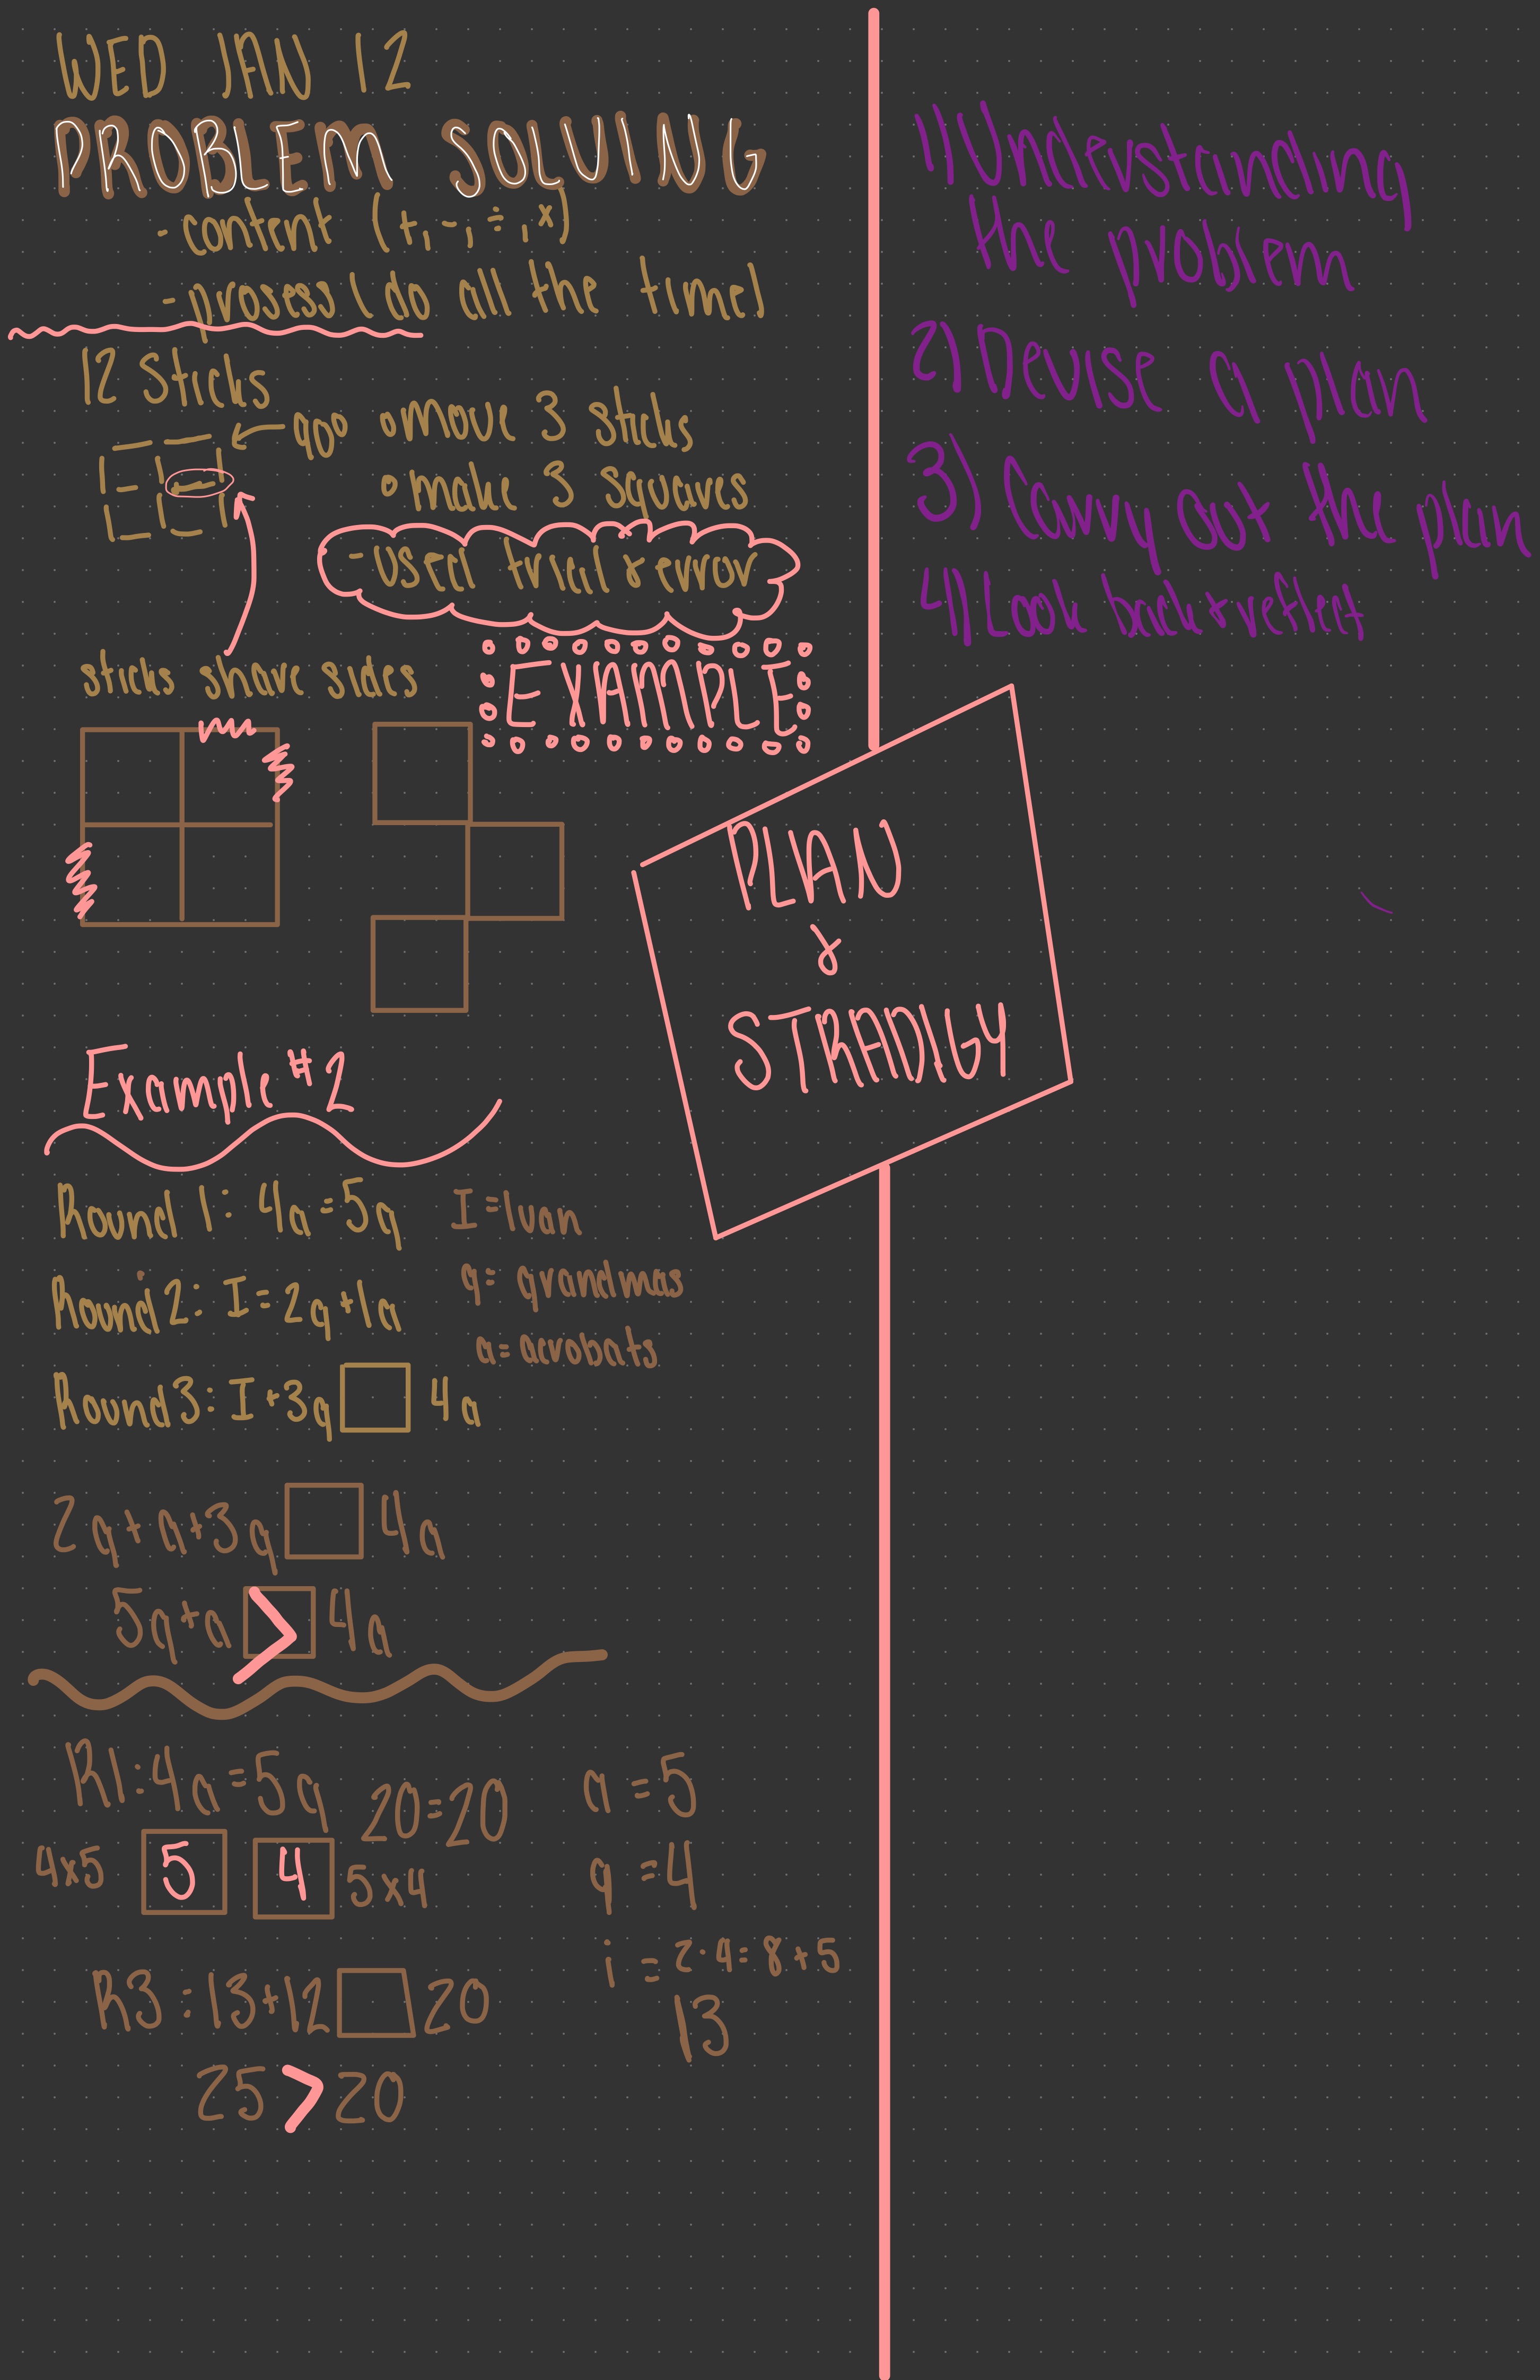 WED JAN 12
PROBLEM SOLVING
- content (+, -, ÷, x)
- prosess (do all the time)
12 sticks
← gap
o move 3 sticks
o make 3 squares
- used trial & error
sticks share sides
EXAMPLE
1) Understanding
the problem
2) Devise a plan
3) Carry out the plan
4) Look back + reflect
PLAN
&
STRANDLY
Example #2
Round 1: 4a=5g
I=Ivan
Round 2: I=2g+1a
g= grandmas
a= acrobats
Round 3: I+3g 4a
2g+a+3g 4a
5g+a > 4a
R1: 4a=5g
20=20
a=5
4x5 5 4 5x4
g=4
i = 2·4=8+5
13
R3: 13+12 20
25 > 20